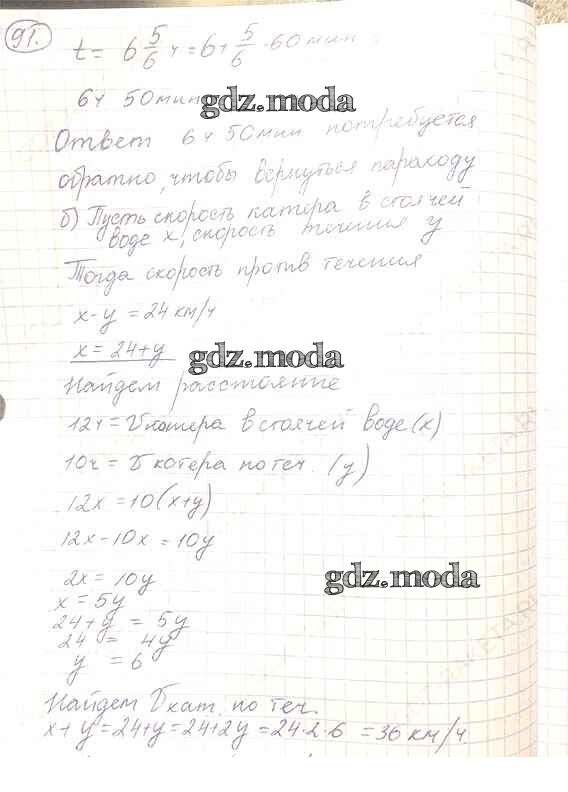 91.
t = 6 5/6 ч = 6 + 5/6 · 60 мин
6ч 50мин
gdz.moda
Ответ 6ч 50мин потребуется
обратно, чтобы вернуться пароходу
б) Пусть скорость катера в стоячей
воде x, скорость течения y
Тогда скорость против течения
x-y = 24 км/ч
x = 24+y
gdz.moda
Найдем расстояние
12ч = υ катера в стоячей воде (x)
10ч = υ котера по теч. (y)
12x = 10(x+y)
12x-10x = 10y
2x = 10y
gdz.moda
x = 5y
24+y = 5y
24 = 4y
y = 6
Найдем υ кат. по теч.
x+y = 24+y = 24+2y = 24·2·6 = 36 км/ч